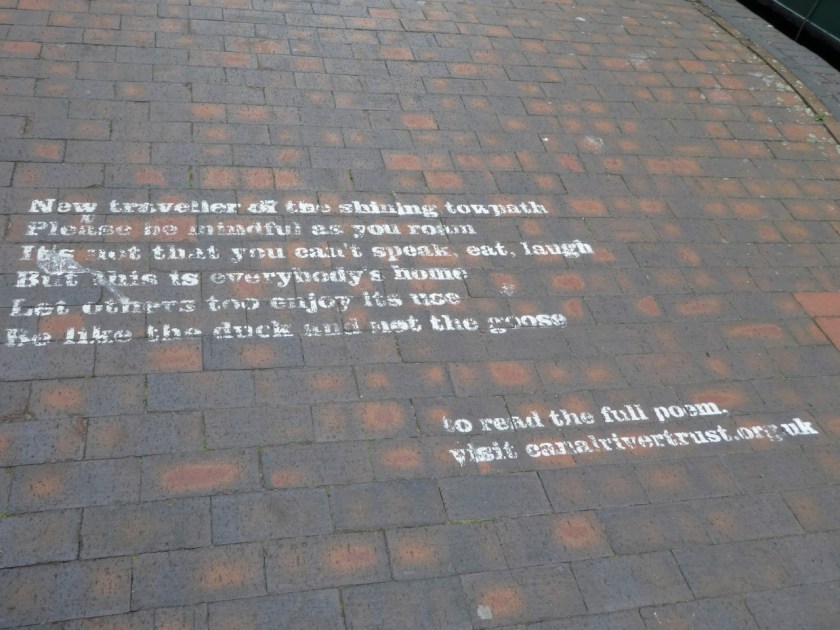 New traveller of the shining towpath
Please be mindful as you roam
It's not that you can't speak, eat, laugh
But this is everybody's home
Let others too enjoy its use
Be like the duck and not the goose
to read the full poem,
visit canalrivertrust.org.uk